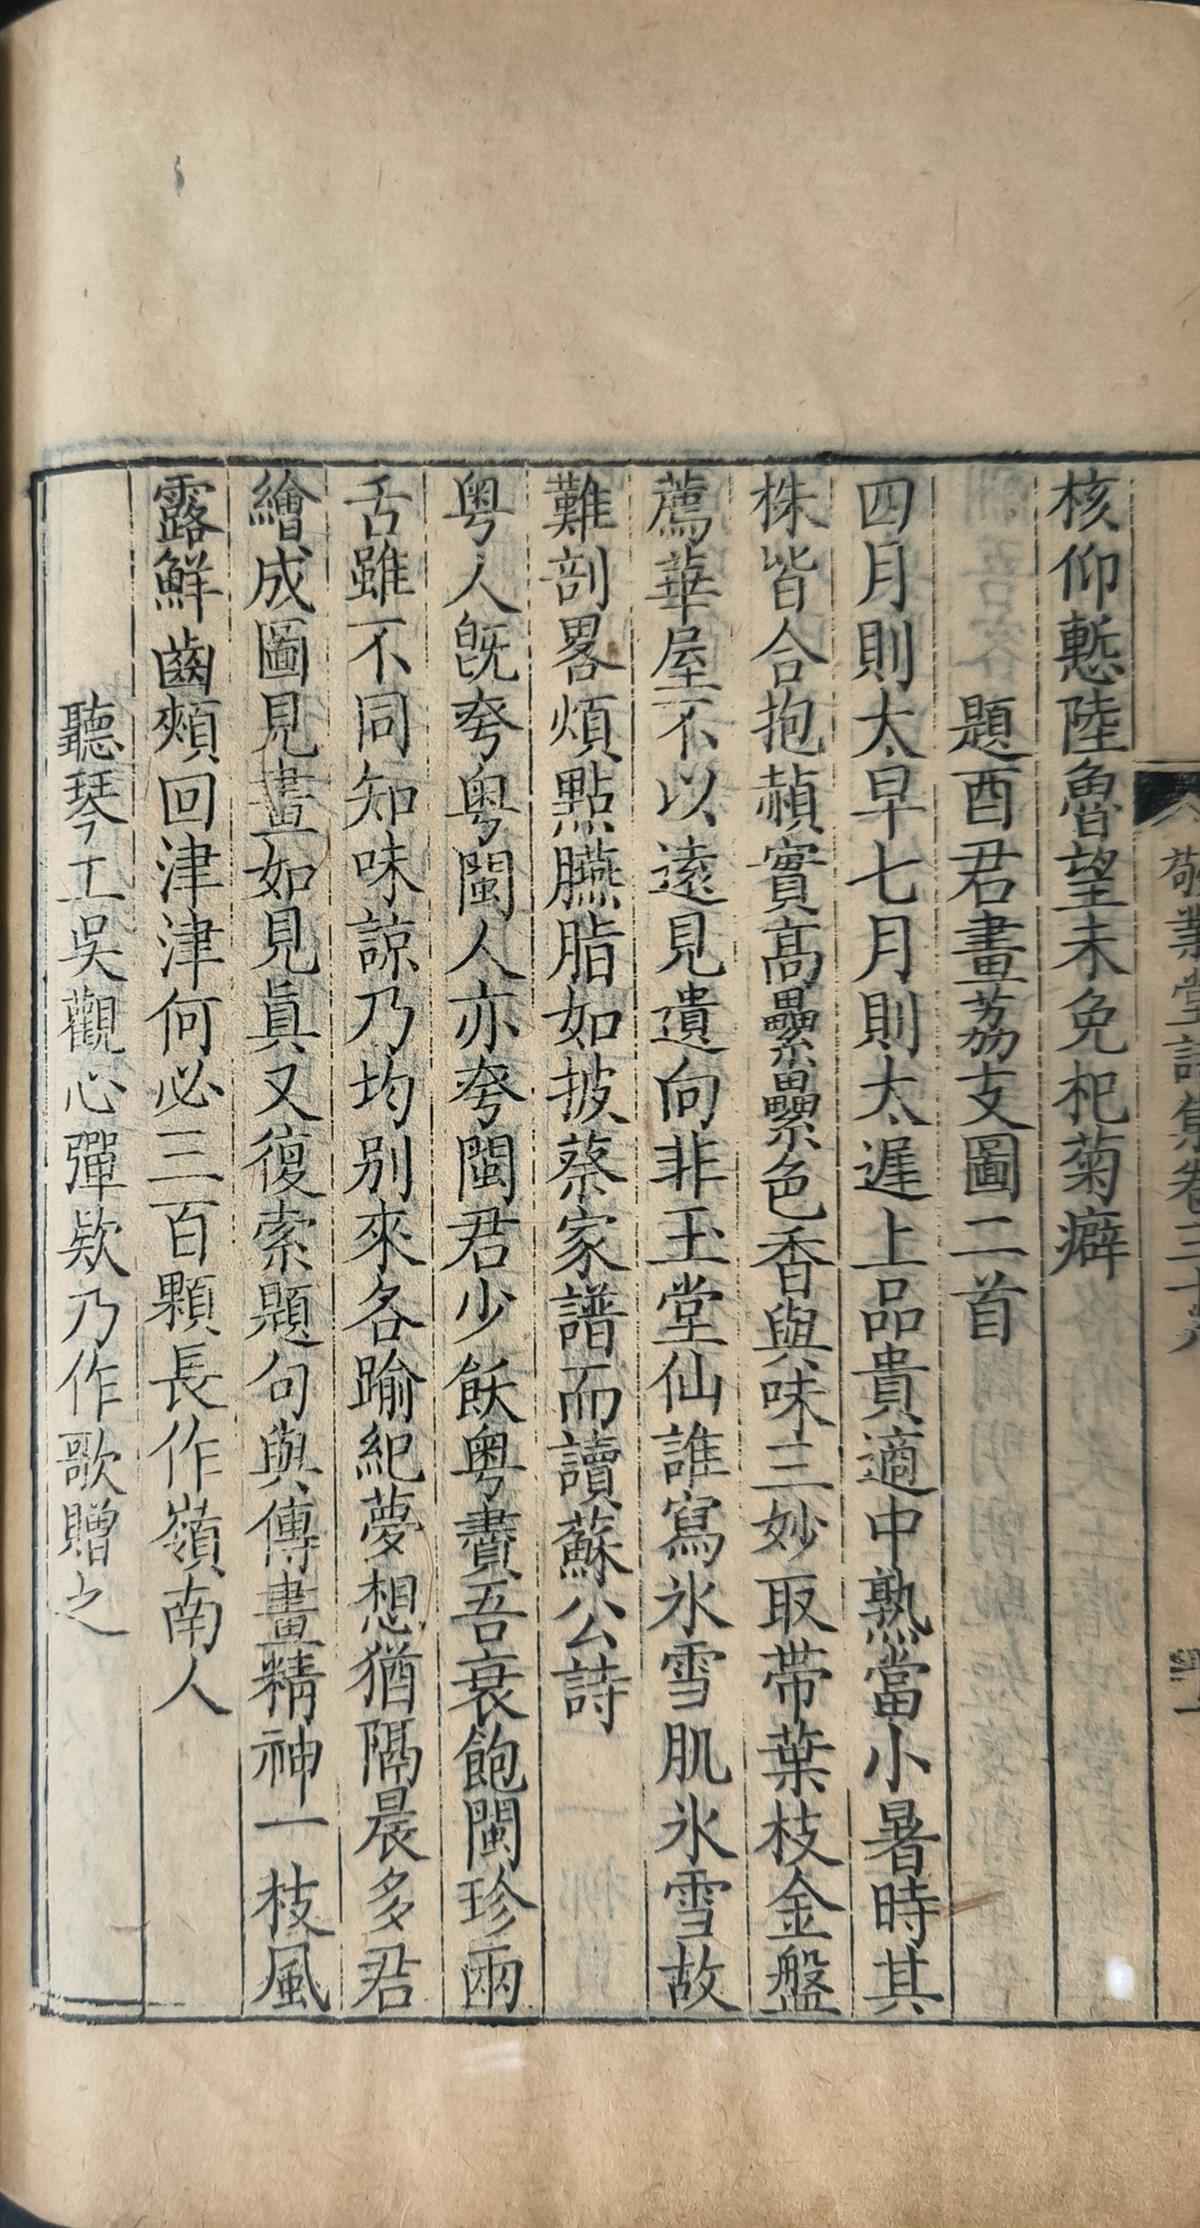 敬業堂詩集卷三十八
核仰慙陸魯望未免杞菊癖
題酉君畫茘支圖二首
四月則太早七月則太遲上品貴適中熟當小暑時其
株皆合抱赬實高纍纍色香與味三妙取帶葉枝金盤
薦華屋不以遠見遺向非玉堂仙誰寫氷雪肌氷雪故
難剖畧煩點臙脂如披蔡家譜而讀蘇公詩
粤人旣夸粤閩人亦夸閩君少飫粤賮吾衰飽閩珍兩
舌雖不同知味諒乃均别來各踰紀夢想猶隔晨多君
繪成圖見畫如見眞又復索題句與傳畫精神一枝風
露鮮齒頰回津津何必三百顆長作嶺南人
聽琴工吳觀心彈欵乃作歌贈之